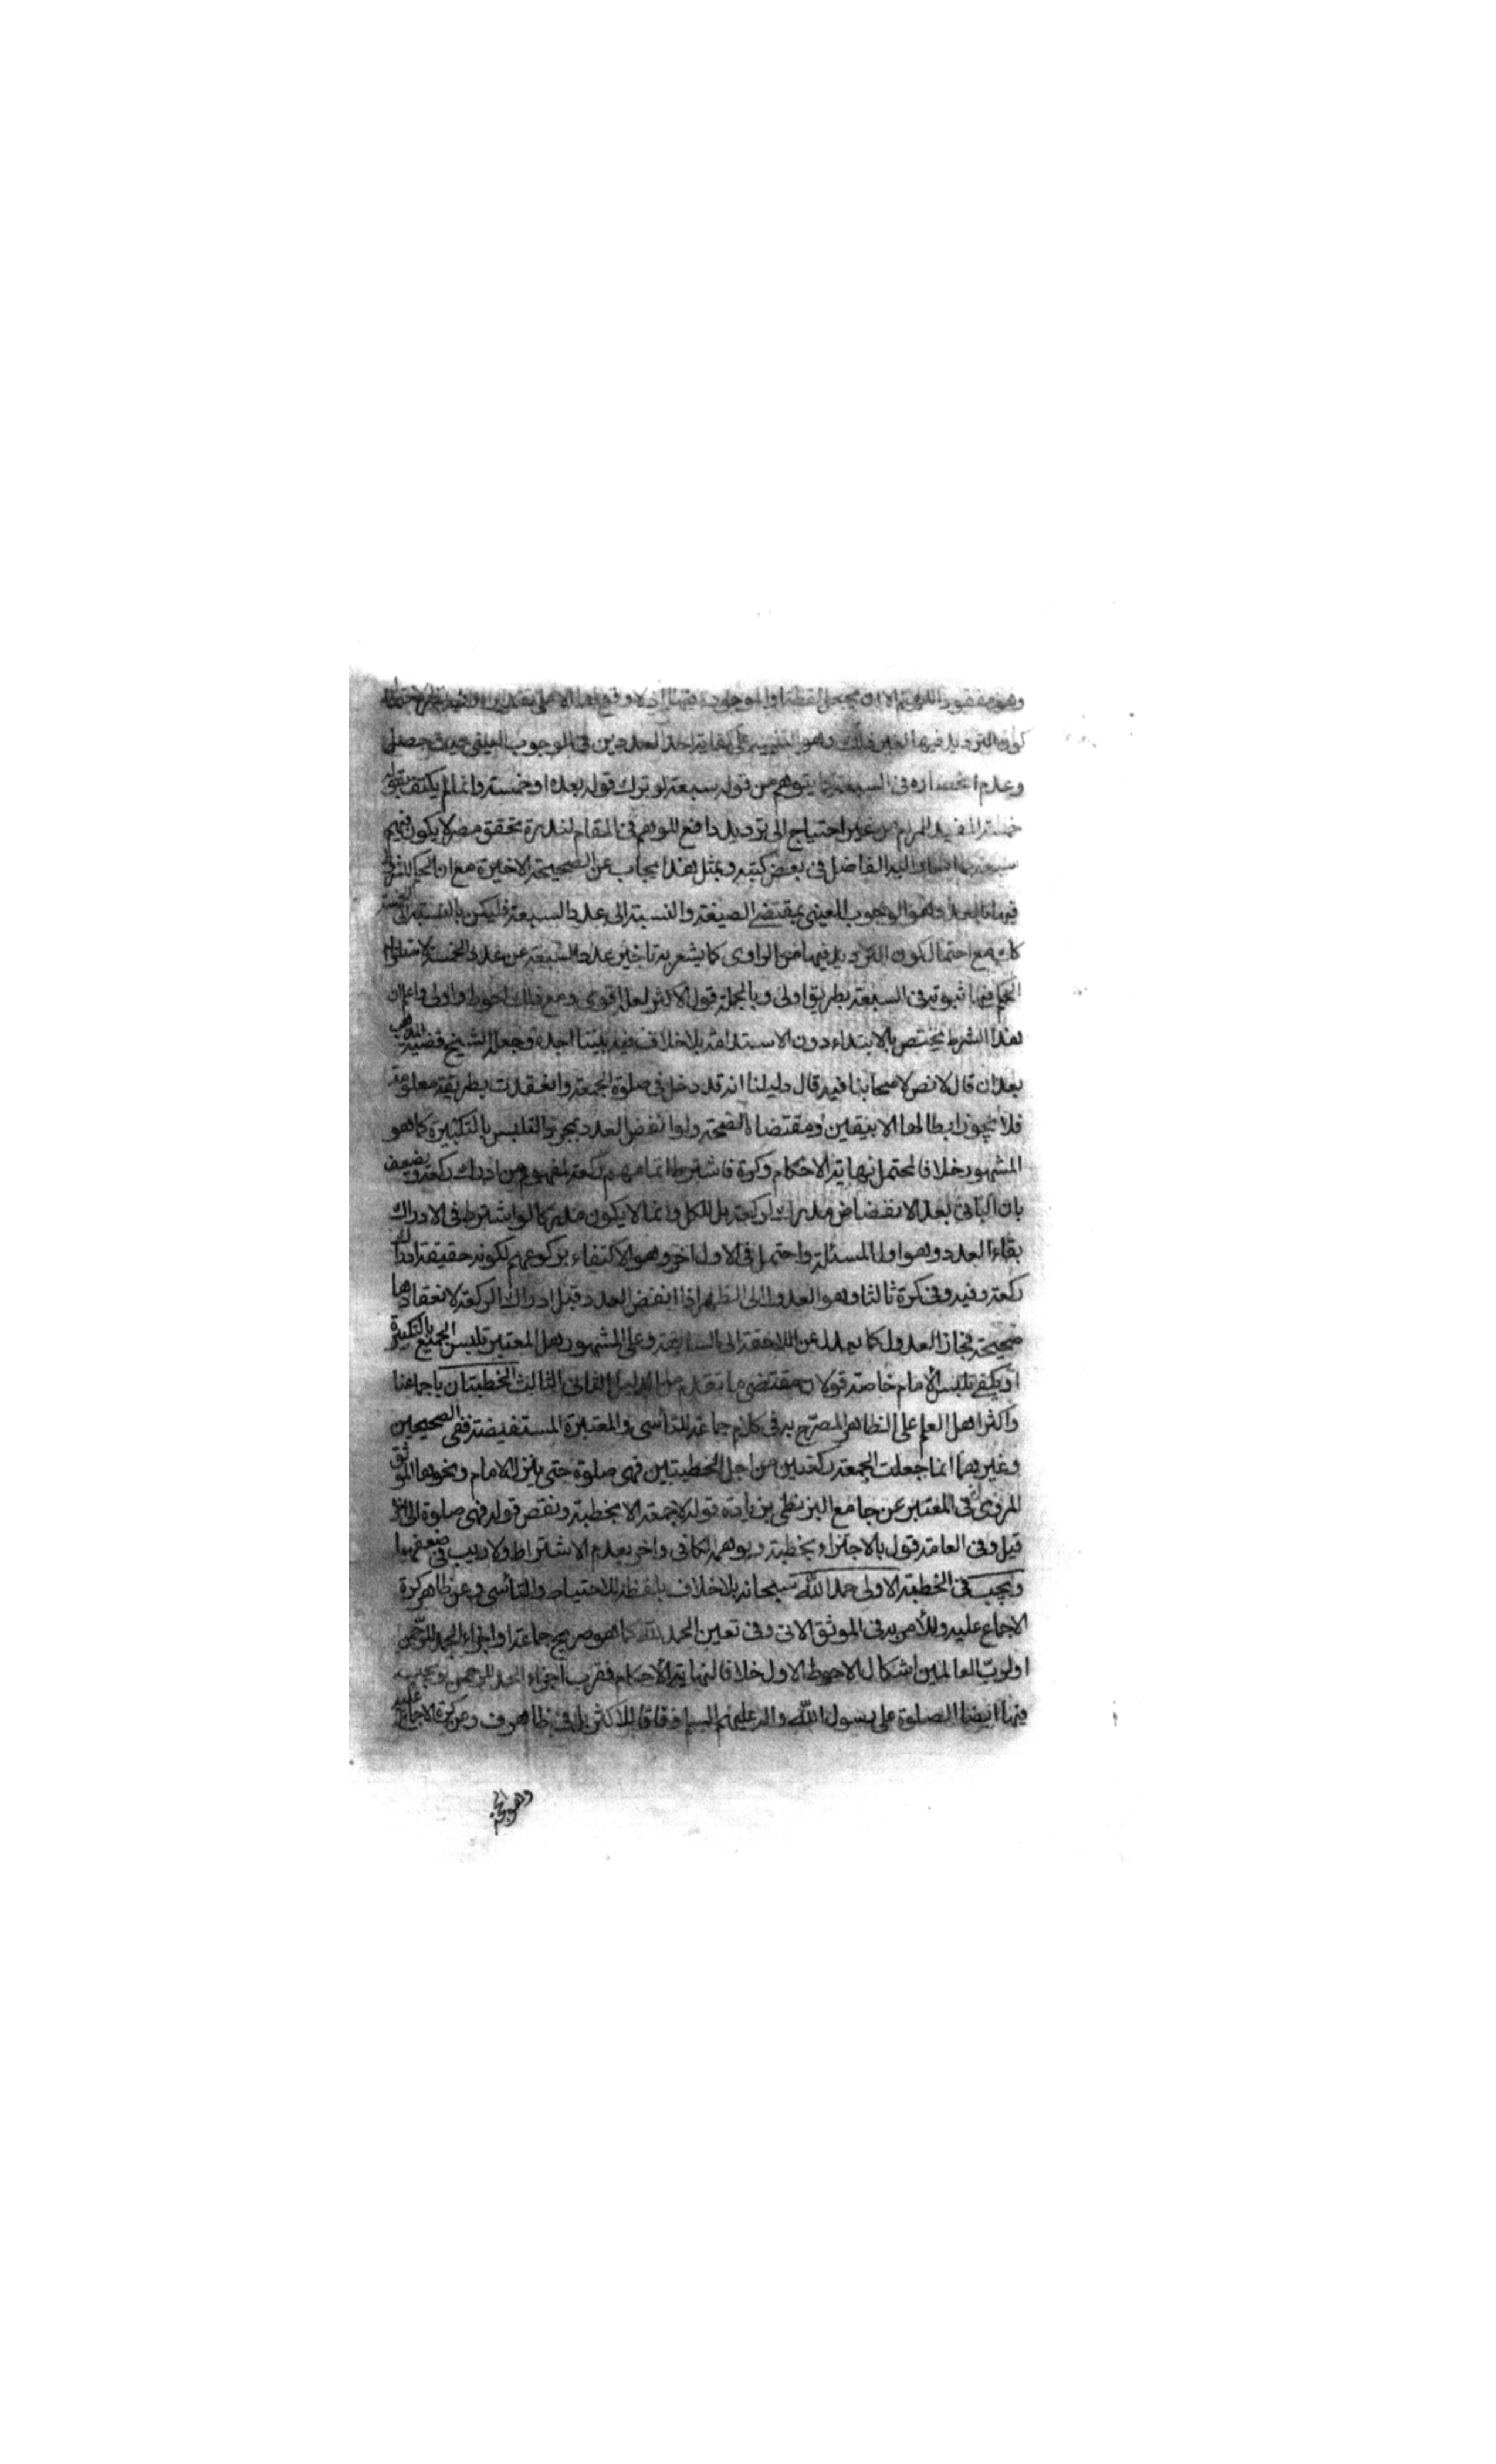 وهو مفقود اللهم الا ان يجعل لفظة او الموجودة فيها
كون الترديد فيها لغير ذلك وهو التنبيه على كفاية احد العددين في الوجوب العيني حيث حصل
وعدم انحصاره في السبعة كما يتوهم من قوله سبعة لو ترك قوله بعده او خمسة وانما لم يكتف بقوله
خمسة المفيد للمرام من غير احتياج الى ترديد دافع للوهم في المقام لندرة تحقق مصر لا يكون فيهم
سبعة كما اشار اليه الفاضل في بعض كتبه وبمثل هذا يجاب عن الصحيحة الاخيرة مع ان الحكم
فيها بالعدد وهو الوجوب العيني بمقتضى الصيغة والنسبة الى عدد السبعة فليكن بالنسبة الى الخمسة
كك مع احتمال كون الترديد فيها من الراوى كما يشعر به تاخير عدد السبعة عن عدد الخمسة لاستلزام
الحكم فيها ثبوته في السبعة بطريق اولى وبالجملة قول الاكثر لعله اقوى ومع ذلك احوط واولى واعلم ان
هذا الشرط يختص بالابتداء دون الاستدامة بلا خلاف فيه بيننا اجده وجعله الشيخ قضية المذهب
بعد ان قال لا نص لاصحابنا فيه قال دليلنا انه قد دخل في صلوة الجمعة وانعقدت بطريقة معلومة
فلا يجوز ابطالها الا بيقين ومقتضاه الصحة ولو انفض العدد بمجرد التلبس بالتكبيرة كما هو
المشهور خلافا لمحتمل نهاية الاحكام وكرة فاشترط اتمامهم ركعة لمفهوم من ادرك ركعة ويضعف
بان الباقي بعد الانفضاض مدرك لركعة بل للكل وانما لا يكون مدركا لو اشترط في الادراك
بقاء العدد وهو اول المسئلة واحتمل في الاول اخر وهو الاكتفاء بركوعهم لكونه حقيقة ادراك
ركعة وفيه وفي كرة ثالثا وهو العدول الى الظهر اذا انفض العدد قبل ادراك الركعة لانعقادها
صحيحة فجاز العدول كما يعدل عن اللاحقة الى السابقة وعلى المشهور هل المعتبر تلبس الجميع بالتكبيرة
او يكفي تلبس الامام خاصة قولان مقتضى ما تقدم من الدليل الثاني الثالث الخطبتان باجماعنا
واكثر اهل العلم على الظاهر المصرح به في كلام جماعة للتأسي والمعتبرة المستفيضة ففي الصحيحين
وغيرهما انما جعلت الجمعة ركعتين من اجل الخطبتين فهي صلوة حتى ينزل الامام ونحوها الموثق
المروى في المعتبر عن جامع البزنطي بزيادة قوله لا جمعة الا بخطبة ونقص قوله فهي صلوة الى اخره
قيل وفي العامة قول بالاجتزاء بخطبة ويوهمه الكافي واخر بعدم الاشتراط ولا ريب في ضعفهما
ويجب في الخطبة الاولى حمد الله سبحانه بلا خلاف بلفظه للاحتياط والتأسي وعن ظاهر كرة
الاجماع عليه وللأمر به في الموثق الاتي وفي تعين الحمد لله كما هو صريح جماعة او اجزاء الحمد للرحمن
او لرب العالمين اشكال الاحوط الاول خلافا لنهاية الأحكام فقرب اجزاء الحمد للرحمن ويجب
فيها ايضا الصلوة على رسول الله واله عليهم السلم وفاقا للاكثر بل في ظاهر ف وعن كرة الاجماع عليه